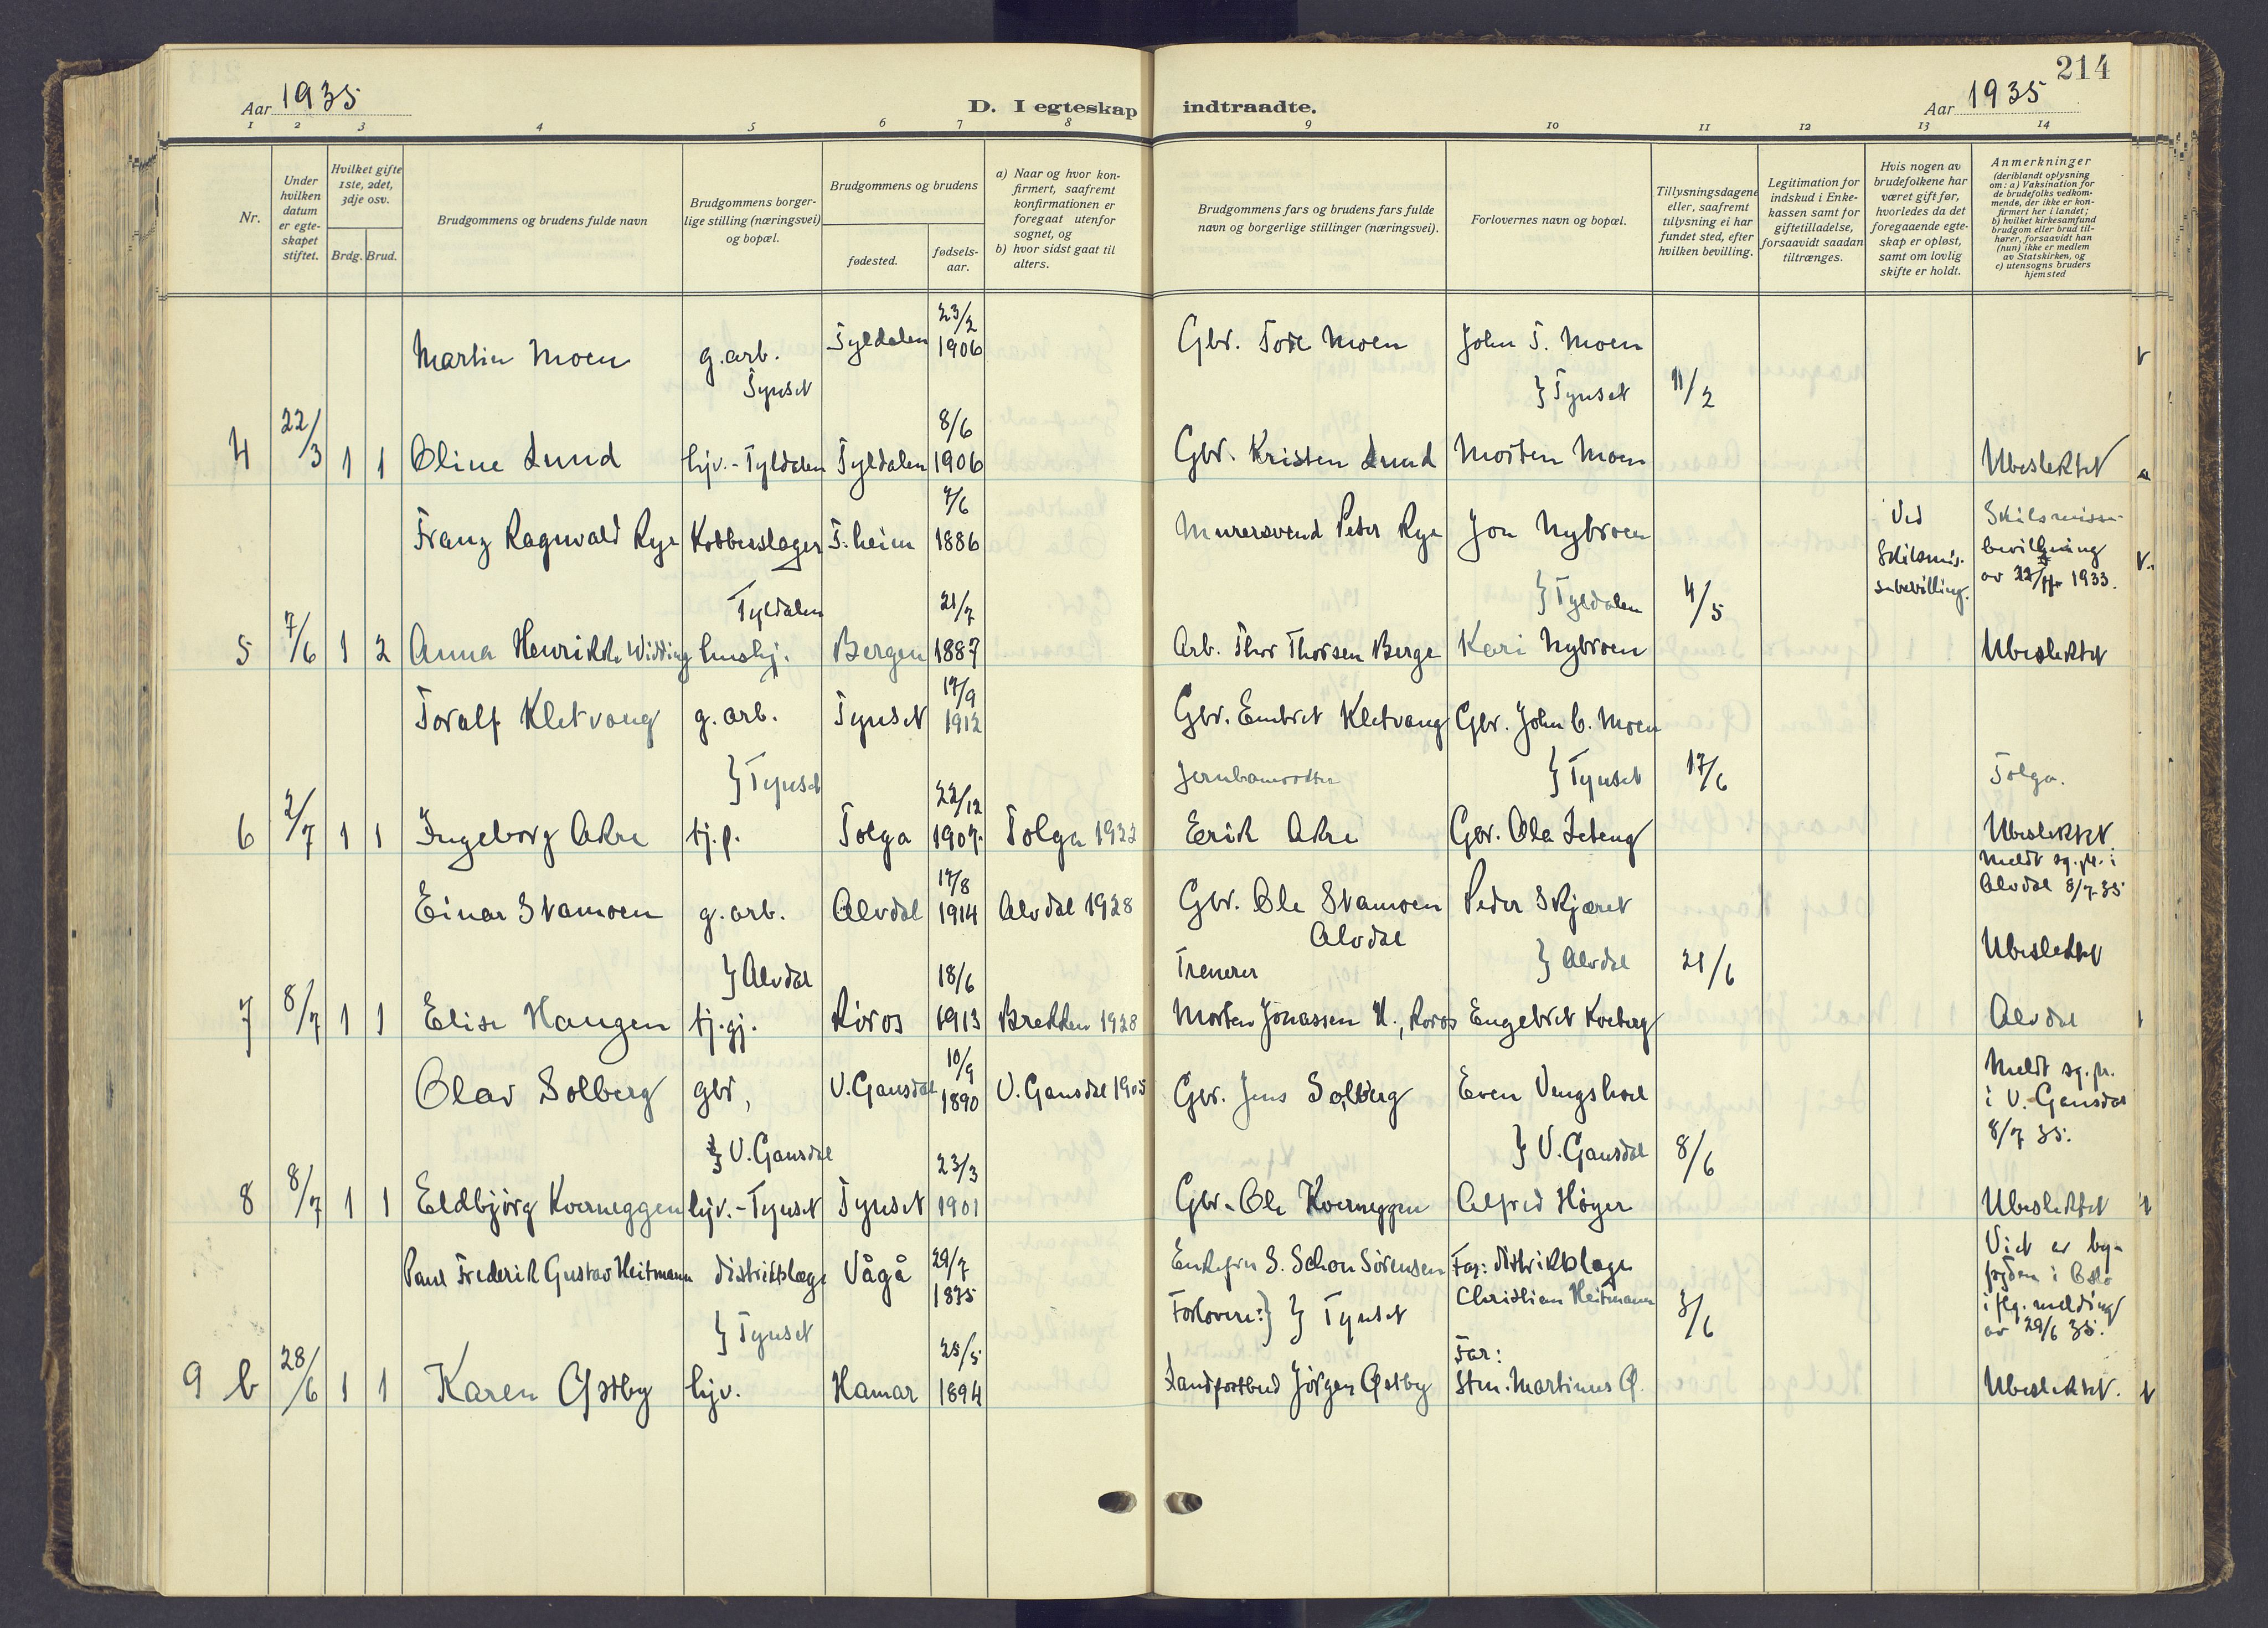 214
Aar 1935
D. I egteskap indtraadte.
Aar 1935
1 2 3 4 5 6 7 8 9 10 11 12 13 14
Nr.
Under hvilken datum er egte- skapet stiftet.
Hvilket gifte 1ste, 2det, 3dje osv.
Brdg. Brud.
Brudgommens og brudens fulde navn
Brudgommens borger- lige stilling (næringsvei) og bopæl.
Brudgommens og brudens
fødested.
fødsels- aar.
a) Naar og hvor kon- firmert, saafremt konfirmationen er foregaat utenfor sognet, og
b) hvor sidst gaat til alters.
Brudgommens fars og brudens fars fulde navn og borgerlige stillinger (næringsvei).
Forlovernes navn og bopæl.
Tillysningsdagene eller, saafremt tillysning ei har fundet sted, efter hvilken bevilling.
Legitimation for indskud i Enke- kassen samt for giftetilladelse, forsaavidt saadan tiltrænges.
Hvis nogen av brudefolkene har været gift før, hvorledes da det foregaaende egte- skap er opløst, samt om lovlig skifte er holdt.
Anmerkninger (deriblandt oplysning om: a) Vaksination for de brudefolks vedkom- mende, der ikke er kon- firmert her i landet; b) hvilket kirkesamfund brudgom eller brud til- hører, forsaavidt han (hun) ikke er medlem av Statskirken, og c) utensogns bruders hjemsted
23/2
Martin Moen g. arb. Tyldalen 1906 Gbr. Tore Moen John T. Moen
Tynset } Tynset 11/2
22/3 8/6
4 1 1 Oline Lund hjv. - Tyldalen Tyldalen 1906 Gbr. Kristen Lund Morten Moen Ubeslektet
7/6
Franz Ragnvald Rye Kobberslager T.heim 1886 Murersvend Peter Rye Jon Nybroen Ved Skilsmis- sebevilling. Skilsmisse- bevillgning av 1933.
Tyldalen 21/7 } Tyldalen 4/5
5 7/6 1 2 Anna Henrikke Widding hushj. Bergen 1887 Arb. Thor Thorsen Berge Kari Nybroen Ubeslektet
17/9
Toralf Kletvang g. arb. Tynset 1912 Gbr. Embret Kletvang Gbr. John C. Moen
} Tynset 22/12 } Tynset 17/6 Tolga.
6 2/7 1 1 Ingeborg Akre tj.p. Tolga 1907. Tolga 1922 Erik Akre Gbr. Ola Ubeslektet
17/8 Meldt sg.pr. i
Einar Stamoen g. arb. Alvdal 1914 Alvdal 1928 Gbr. Ole Stamoen Peder Skjæret Alvdal 8/7 35
Alvdal
} Alvdal 18/6 } Alvdal 21/6 Ubeslektet
7 8/7 1 1 Elise Haugen tj.gj. Røros 1913 Brekken 1928 Morten Jonassen H., Røros Engebret Alvdal
10/9
Olav Solberg gbr, V. Gausdal 1890 V. Gausdal 1905 Gbr. Jens Solberg Even Vengshoel Meldt sg.pr. i V. Gausdal 8/7 35.
} V. Gausdal 23/3 } V. Gausdal 8/6
8 8/7 1 1 Eldbjørg Kverneggen hjv. - Tynset Tynset 1901 Gbr. Ole Kverneggen Alfred Høyer Ubeslektet
Paul Frederik Gustav Heitmann distriktslæge Vågå 29/7 1875 Enkefru S. Schou Sørensen Far: distriktslæge Christian Heitmann Viet av by- fogden i Oslo iflg. melding av 29/6 35.
} Tynset Forlovere: } } Tynset 3/6
25/5 Far:
9 b 28/6 1 1 Karen Østby hjv. Hamar 1894 Landpostbud Jørgen Østby Stm. Martinus Ø. Ubeslektet.